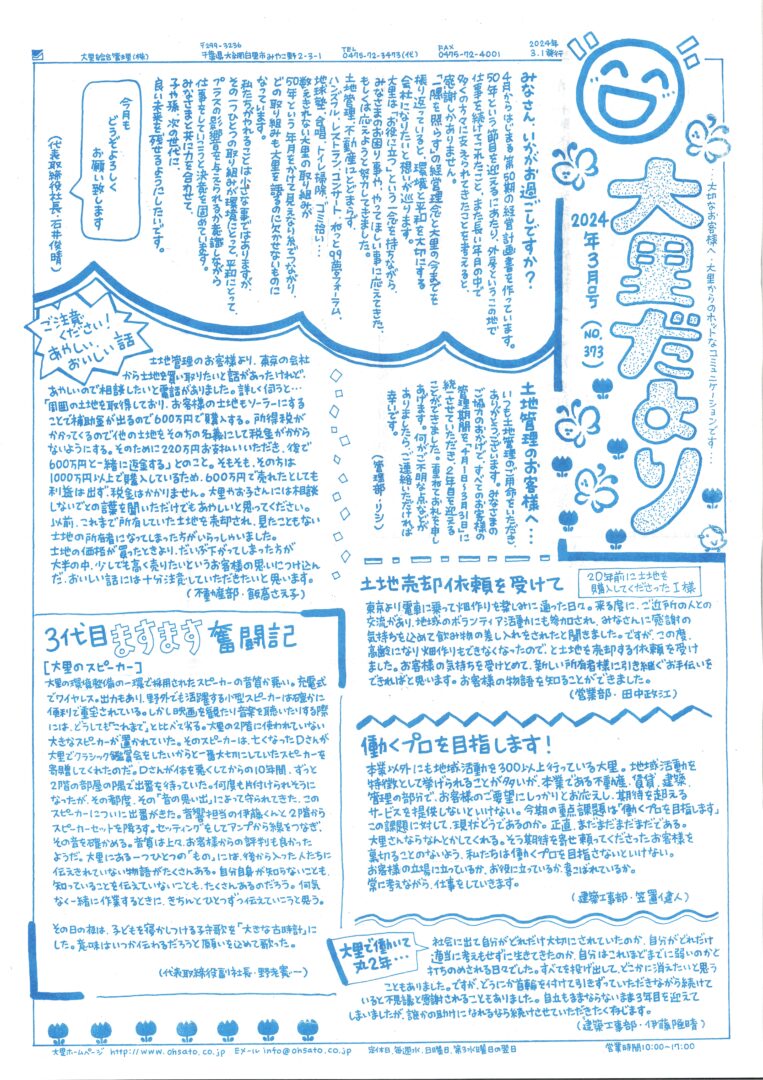 大里綜合管理(株)
〒299-3236
千葉県大網白里市みやこ野2-3-1
TEL
0475-72-3473(代)
FAX
0475-72-4001
2024年
3.1発行
…大切なお客様へ…大里からのホットなコミュニケーションです…
大里だより
2024年3月号(NO.373)
みなさん、いかがお過ごしですか?
4月からはじまる第50期の経営計画書を作っています。
50年という節目を迎えるにあたり、外房というこの地で
仕事を続けてこれたこと、また長い年月の中で
多くの方々に支えられてきたことを考えると、
感謝しかありません。
「一隅を照らす」の経営理念と大里の今までを
振り返っていると、環境と平和を大切にする
会社になりたいと想いが巡ります。
大里は「お役に立つ」という一念を持ちながら、
みなさまのお困り事や、やってほしい事に応えてきた、
もしくは応えようと努力してきました。
土地管理、不動産にとどまらず、
ハンズフル、レストラン、コンサート、町々99歯車フォーラム、
地球塾、合唱、トイレ掃除、ゴミ拾い…
数えきれない大里の取り組みが
50年という年月をかけて見えない糸でつながり、
どの取り組みも大里を語るのに欠かせないものに
なっています。
私たちがやれることは小さな事ではありますが、
その一つひとつの取り組みが環境にとって、平和にとって、
プラスの影響を与えられるかを意識しながら
仕事をしていこうと決意を固めています。
みなさまと共に力を合わせて、
子や孫、次の世代に、
良い未来を残せるようにしたいです。
今月も
どうぞよろしく
お願い致します
(代表取締役社長・石井俊晴)
ご注意
ください!
あやしい、
おいしい話
土地管理のお客様より、東京の会社
から土地を買い取りたいと話があったけれど、
あやしいので相談したいと電話がありました。詳しく伺うと…
「周囲の土地を取得しており、お客様の土地もソーラーにする
ことで補助金が出るので600万円で購入する。所得税が
かかってくるので他の土地をその方の名義にして税金がかから
ないようにする。そのために220万円お支払いいただき、後で
600万円と一緒に返金する」とのこと。そもそも、その方は
1000万円以上で購入しているため、600万円で売れたとしても
利益は出ず、税金はかかりません。大里やお子さんには相談
しないでとの言葉を聞いただけでもあやしいと思ってください。
以前、これまで所有していた土地を売却され、見たこともない
土地の所有者になってしまった方がいらっしゃいました。
土地の価格が買ったときより、だいぶ下がってしまった方が
大半の中、少しでも高く売りたいというお客様の思いにつけ込ん
だ、おいしい話には十分注意していただきたいと思います。
(不動産部・飯高さえ子)
土地管理のお客様へ…
いつも土地管理のご用命をいただき、
ありがとうございます。みなさまの
ご協力のおかげで、すべてのお客様の
管理期間を、「4月1日〜3月31日」に
統一させていただき、2年目を迎える
ことができました。重ねてお礼を申し
あげます。何かご不明な点などが
ありましたら、ご連絡いただければ
幸いです。
(管理部・リシ)
土地売却依頼を受けて
20年前に土地を
購入してくださったI様
東京より電車に乗って畑作りを楽しみに通った日々。来る度に、ご近所の人との
交流があり、地域のボランティア活動にも参加され、みなさんに感謝の
気持ちを込めて飲み物の差し入れをされたと聞きました。ですが、この度、
高齢になり畑作りもできなくなったので、と土地を売却する依頼を受け
ました。お客様の気持ちを受けとめて、新しい所有者様に引き継ぐお手伝いを
できればと思います。お客様の物語を知ることができました。
(営業部・田中政江)
3代目ますます奮闘記
[大里のスピーカー]
大里の環境整備の一環で採用されたスピーカーの音質が悪い。充電式
でワイヤレス。出力もあり、野外でも活躍する小型スピーカーは確かに
便利で重宝されている。しかし映画を観たり音楽を聴いたりする際
には、どうしても“これまで”と比べて劣る。大里の2階に使われていない
大きなスピーカーが置かれていた。そのスピーカーは、亡くなったDさんが
大里でクラシック鑑賞会をしたいからと一番大切にしていたスピーカーを
寄贈してくれたのだ。Dさんが体を悪くしてからの10年間、ずっと
2階の部屋の隅で出番を待っていた。何度も片付けられそうに
なったが、その都度、その「音の思い出」によって守られてきた、この
スピーカーについに出番がきた。音響担当の伊藤くんと2階から
スピーカーセットを降ろす。セッティングをしてアンプから線をつなぎ、
その音を確かめる。音質は上々、お客様からの評判も良かった
ようだ。大里にある一つひとつの「もの」には、後から入った人たちに
伝えきれていない物語がたくさんある。自分自身が知らないことも、
知っていることを伝えていないことも、たくさんあるのだろう。何気
なく一緒に作業するときに、きちんとひとつずつ伝えていこうと思う。
その日の夜は、子どもを寝かしつける子守歌を「大きな古時計」に
した。意味はいつか伝わるだろうと願いを込めて歌った。
(代表取締役副社長・野老憲一)
働くプロを目指します!
本業以外にも地域活動を300以上行っている大里。地域活動を
特徴として挙げられることが多いが、本業である不動産、賃貸、建築、
管理の部分で、お客様のご要望にしっかりとお応えし、期待を超える
サービスを提供しないといけない。今期の重点課題は「働くプロを目指します」
この課題に対して、現状どうであるのか。正直、まだまだまだまだである。
大里さんならなんとかしてくれる。そう期待を寄せ頼ってくださったお客様を
裏切ることのないよう、私たちは働くプロを目指さないといけない。
お客様の立場に立っているか、お役に立っているか、喜ばれているか。
常に考えながら、仕事をしていきます。
(建築工事部・笠置健人)
大里で働いて
丸2年…
社会に出て自分がどれだけ大切にされていたのか、自分がどれだけ
適当に考えもせずに生きてきたのか、自分はこれほどまでに弱いのかと
打ちのめされる日々でした。すべてを投げ出して、どこかに消えたいと思う
こともありました。ですが、どうにか首輪を付けて引きずっていただきながら続けて
いると不思議と感謝されることもありました。自立もままならないまま3年目を迎えて
しまいましたが、誰かの助けになれるなら続けさせていただきたく存じます。
(建築工事部・伊藤隆晴)
大里ホームページ http://www.ohsato.co.jp Eメール info@ohsato.co.jp 定休日、毎週水、日曜日、第3水曜日の翌日 営業時間10:00〜17:00